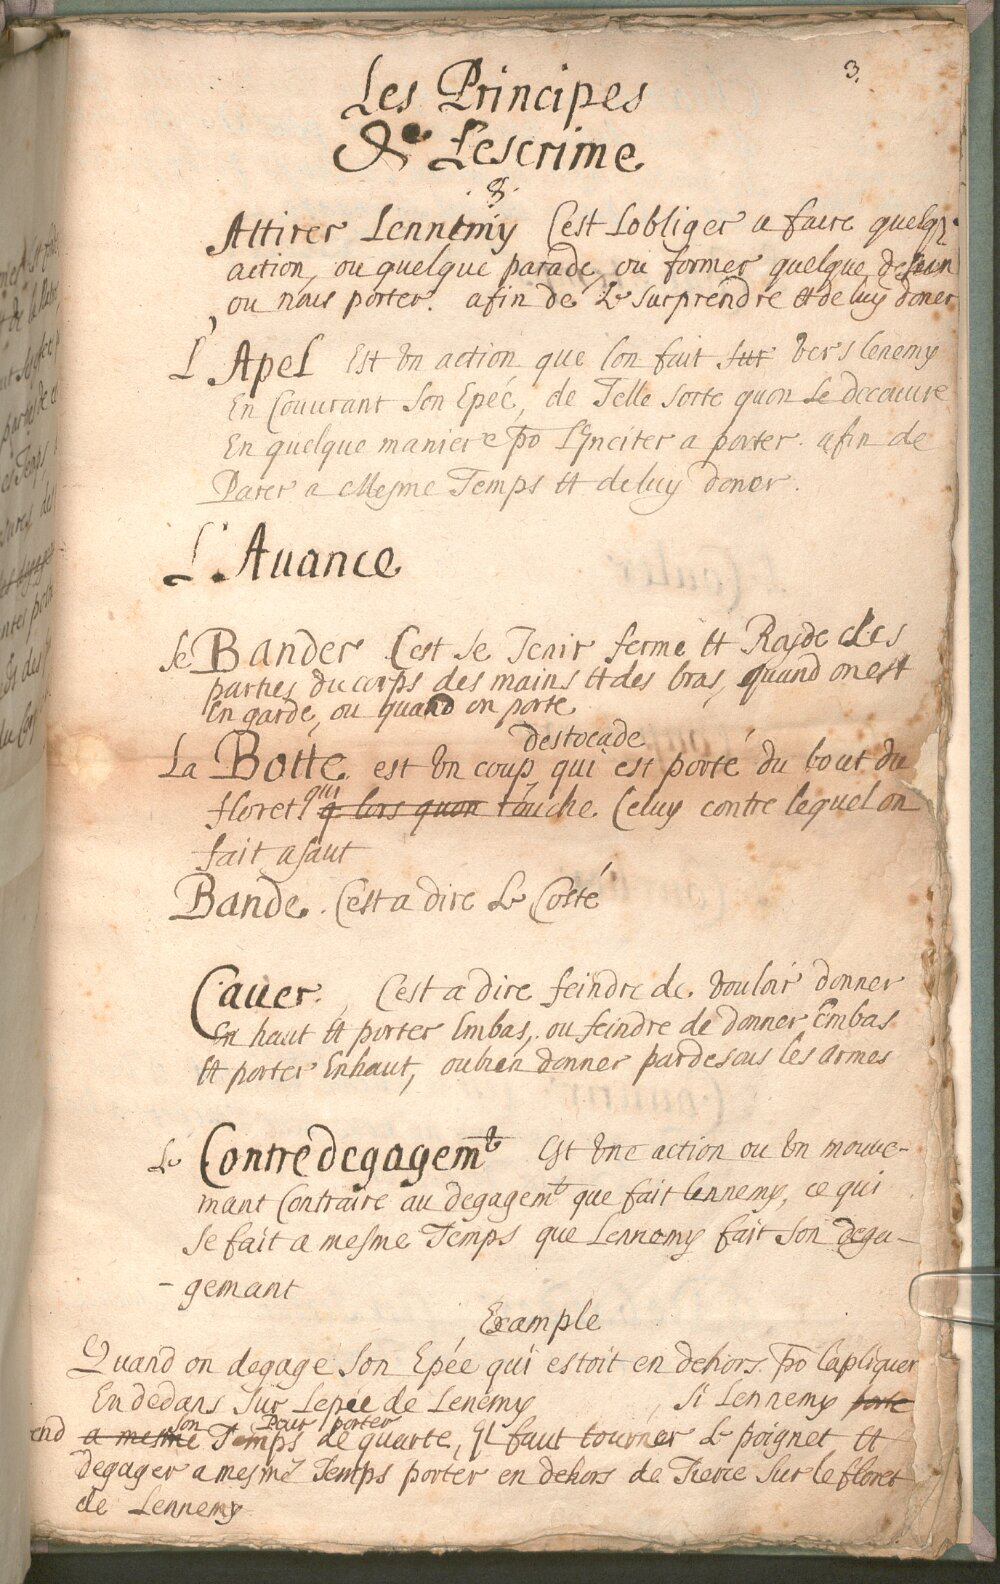 3.
Les Principes
De Lescrime
Attirer Lennemy Cest Lobliger a faire quelq;
action, ou quelque parade, ou former quelque desein
ou nous porter. afin de Le surprendre et de luy doner
L'Apel Est Vn action que lon fait sur vers lenemy
En Couurant Son Epéé, de Telle sorte quon Se decouure
En quelque maniere po L'Ynciter a porter. afin de
Parer a Mesme Temps et de luy doner.
L'Auance
Se Bander Cest se Tenir ferme et Rayde des
parties du corps des mains et des bras, quand on est
En garde, ou quand on porte
destocade
La Botte est Vn coup, qui est porté du bout du
floret qui q lors quon touche Celuy contre lequel on
fait asaut
Bande. Cest a dire Le Costé
Cauer. Cest a dire feindre de vouloir donner
En haut et porter Embas, ou feindre de donner Embas
et porter Enhaut, oubien donner pardesous les armes
Le Contredegagemt Est Vne action ou Vn mouve-
mant Contraire au degagemt que fait lennemy, ce qui
Se fait a mesme Temps que Lennemy fait Son dega-
-gemant
Example
Quand on degage Son Epée qui estoit en dehors. po lapliquer
En dedans Sur Lepée de Lenemy Si Lennemy porte
son Pour porter
end a mesme Temps de quarte, Il faut tourner Le poignet et
degager a mesme Temps porter en dehors de Tierce Sur le floret
de Lennemy